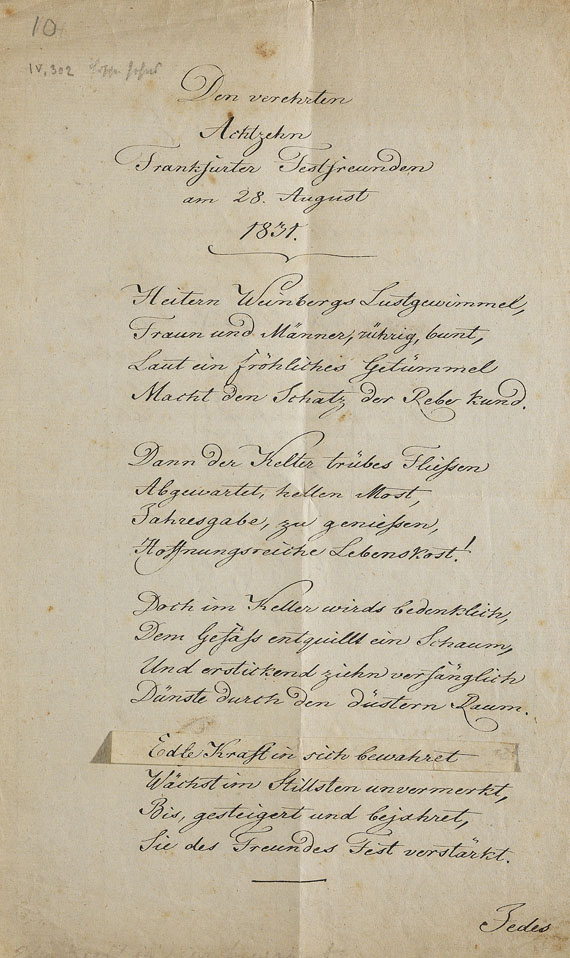 10
IV, 302
Den verehrten
Achtzehn
Frankfurter Festfreunden
am 28. August
1831.
Heitern Weinbergs Lustgewimmel,
Fraun und Männer, rührig, bunt,
Laut ein fröhliches Getümmel
Macht den Schatz der Rebe kund.
Dann der Kelter trübes Fliessen
Abgewartet, hellen Most,
Jahresgabe, zu geniessen,
Hoffnungsreiche Lebenskost!
Doch im Keller wirds bedenklich,
Dem Gefäss entquillt ein Schaum,
Und erstickend ziehn verfänglich
Dünste durch den düstern Raum.
Edle Kraft in sich bewahret
Wächst im Stillsten unvermerkt,
Bis, gesteigert und bejahret,
Sie des Freundes Fest verstärkt.
Jedes